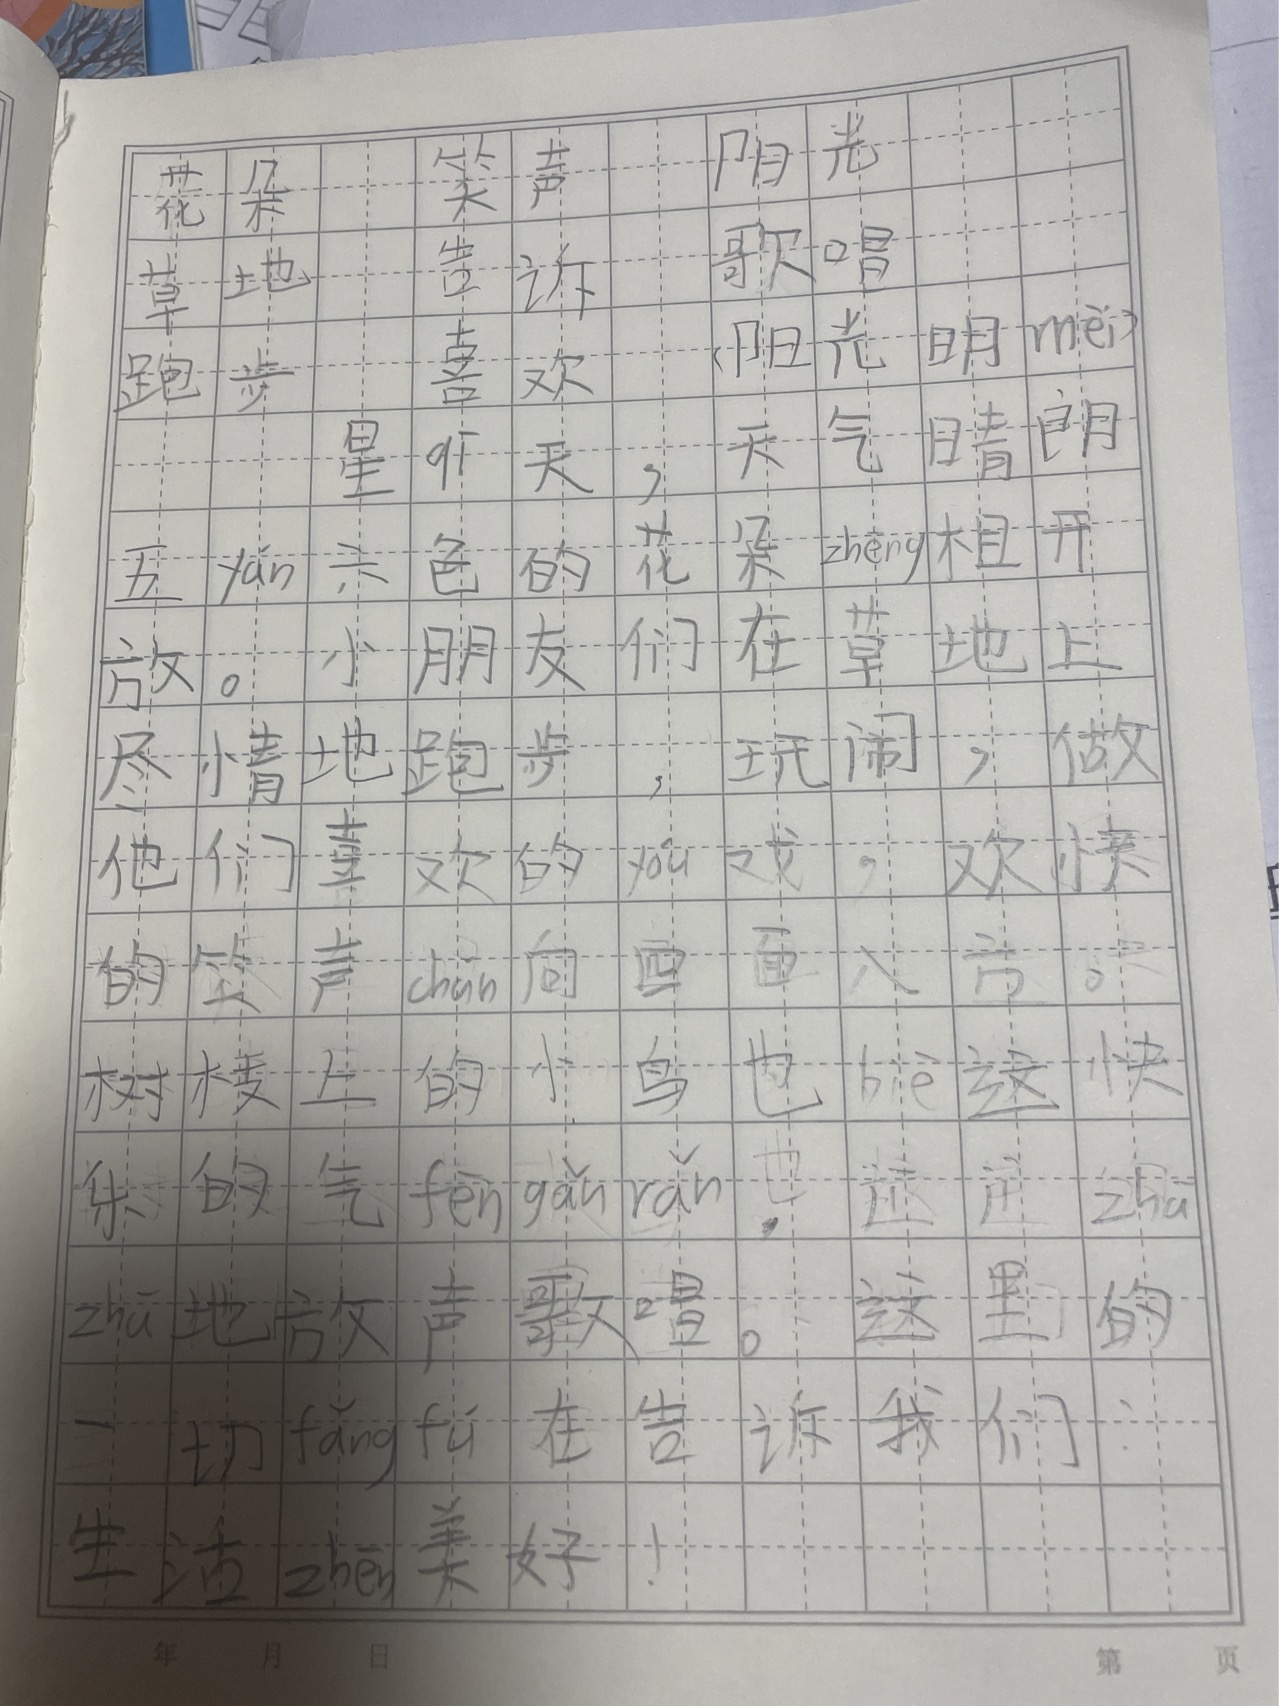 花朵 笑声 阳光
草地 告诉 歌唱
跑步 喜欢 阳光明mèi
星qī天，天气晴朗
五yán六色的花朵zhēng相开
放。小朋友们在草地上
尽情地跑步，玩闹，做
他们喜欢的yóu戏，欢快
的笑声chuán向四面八方。
树枝上的小鸟也bèi这快
乐的气fēngǎnrǎn，zhū
zhū地放声歌唱。这里的
一切fǎngfú在告诉我们：
生活zhēn美好！
年 月 日 第 页